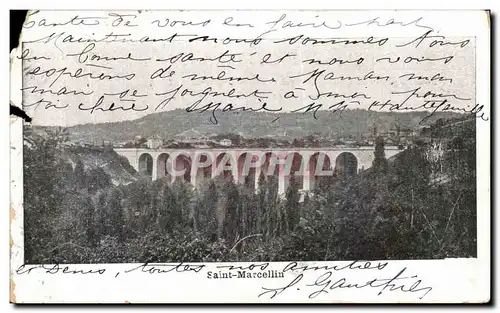 santé de vous en faire part
Maintenant nous sommes tous
en bonne santé et nous vous
espérons de même. Maman, mon
mari se joignent à moi pour
ta chère Marie Mme Hautefeuille
CPARAMA.COM
et Denis, toutes nos amitiés
Saint-Marcellin
S. Gauthier